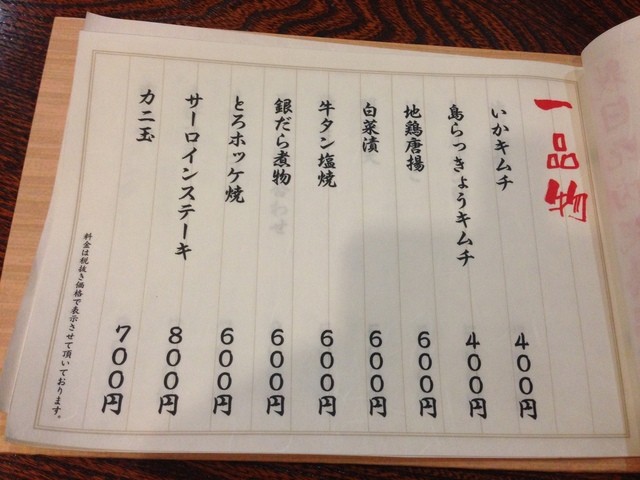 一品物
いかキムチ 400円
島らっきょうキムチ 400円
地鶏唐揚 600円
白菜漬 600円
牛タン塩焼 600円
銀だら煮物 600円
とろホッケ焼 600円
サーロインステーキ 800円
カニ玉 700円
料金は税抜き価格で表示させて頂いております。